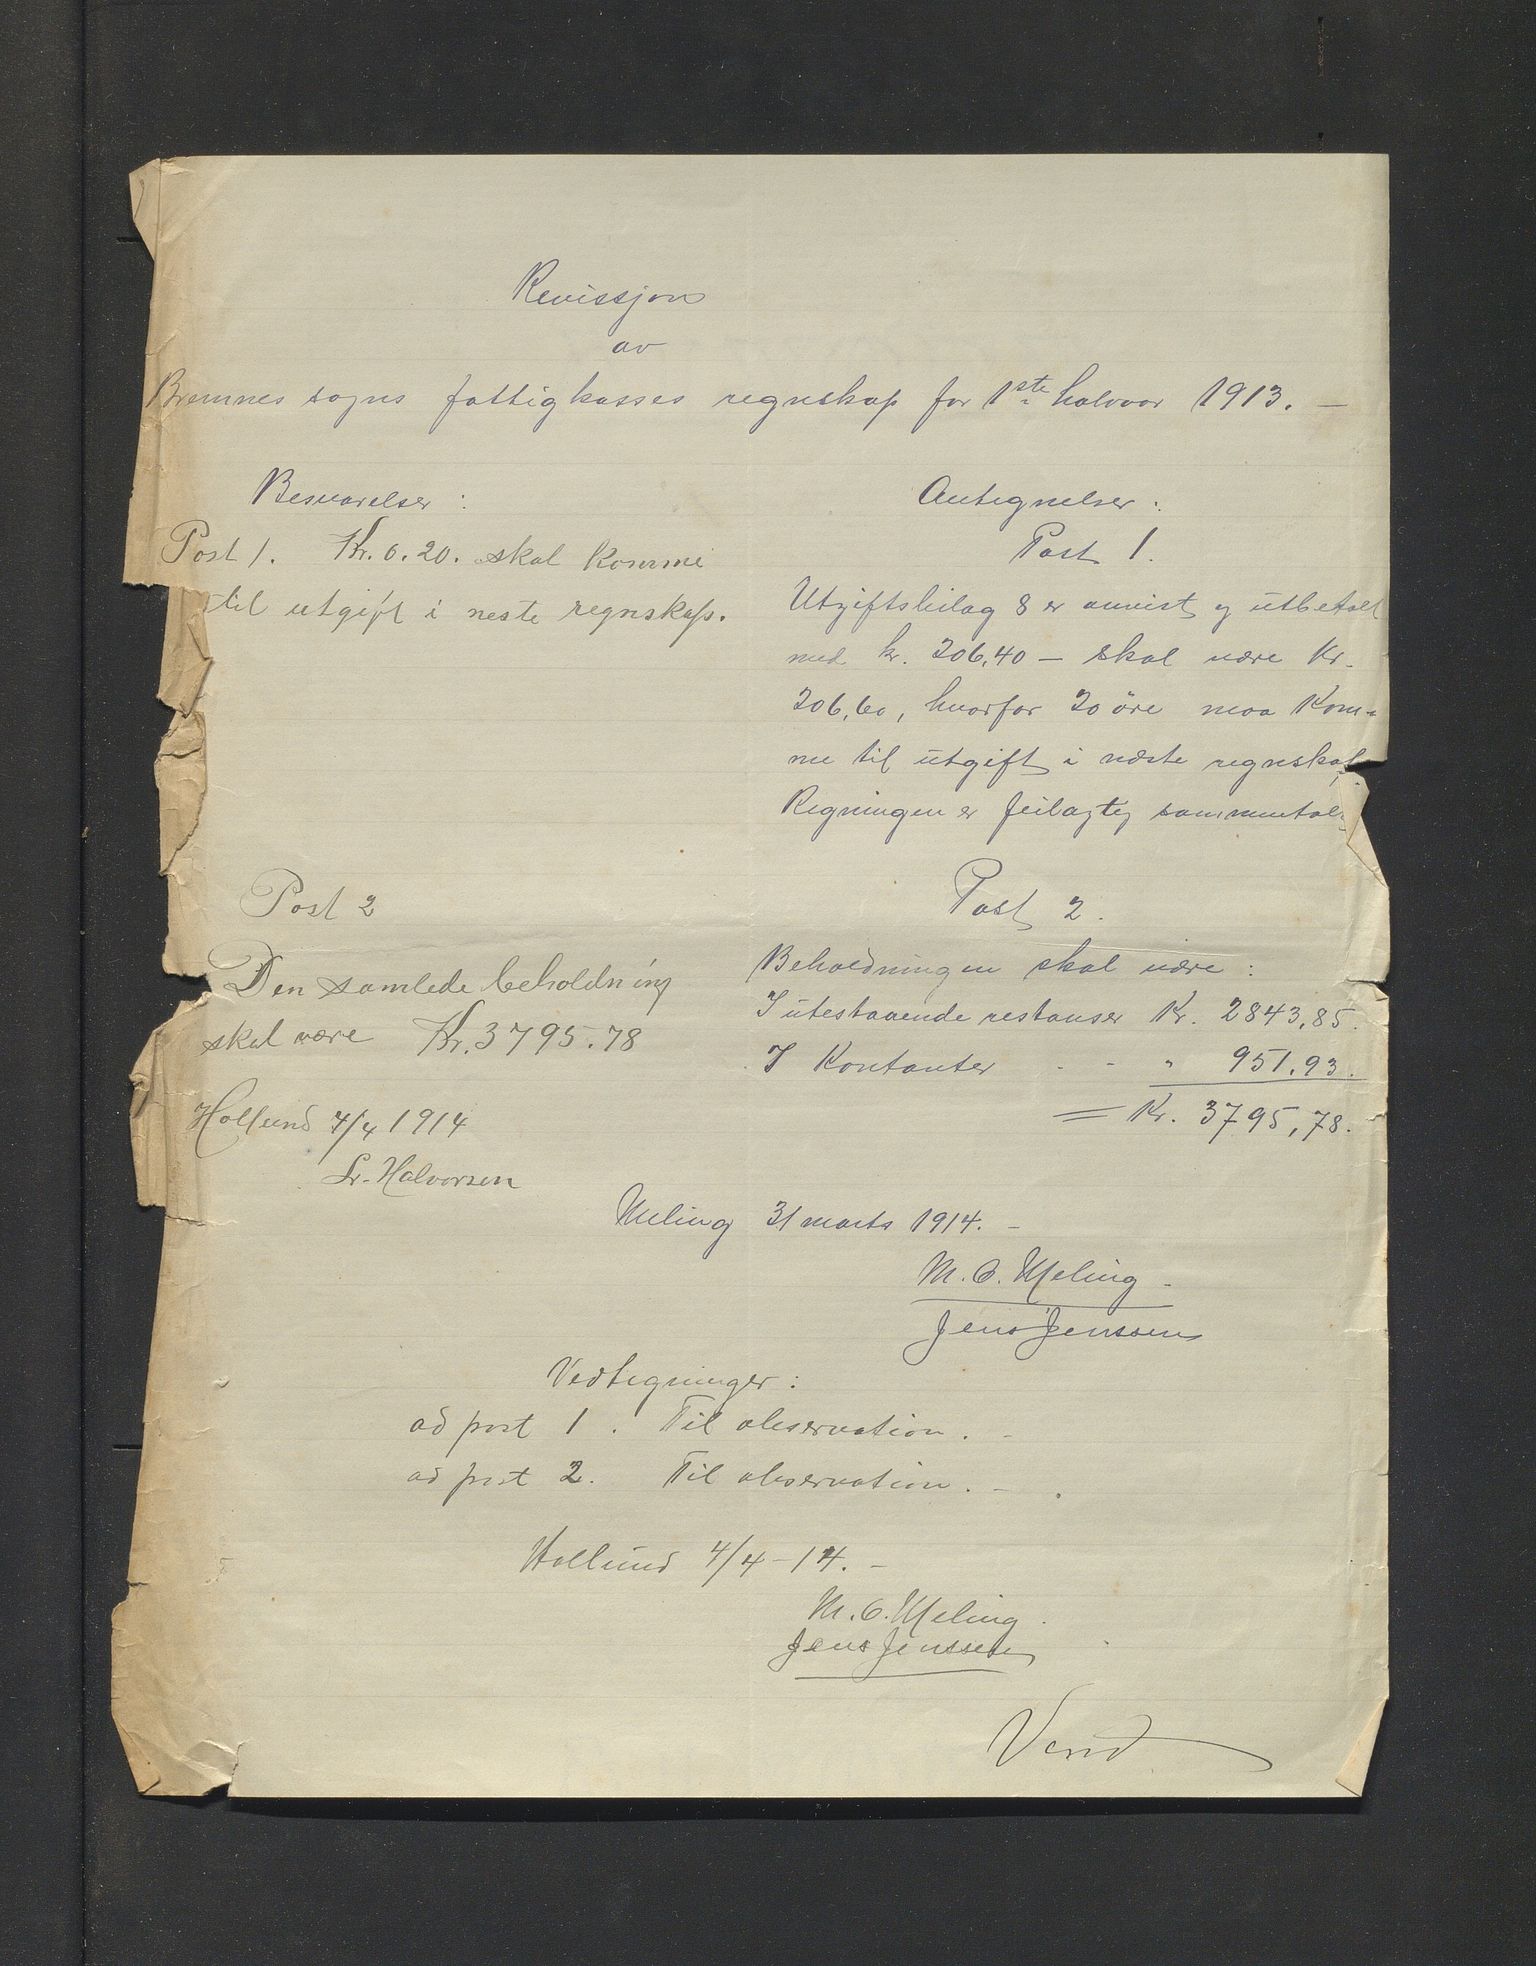 Revissjon
av
Bremnes sogns fattigkasses regnskap for 1ste halvaar 1913. —
Besvarelser :
Post 1. Kr. 0.20. skal komme
til utgift i neste regnskap.
Post 2
Den samlede beholdning
skal være Kr. 3795.78
Hollund 4/4 1914
Halvorsen
Antegnelser :
Post 1.
Utgiftsbilag 8 er anvist og utbetalt
med kr. 206,40 — skal være Kr.
206,60, hvorfor 20 öre maa kom-
me til utgift i næste regnskap.
Regningen er feilagtig sammentalt
Post 2.
Beholdningen skal være :
I utestaaende restanser Kr. 2843,85.
I Kontanter - - " 951,93.
= Kr. 3795,78.
Meling 31 marts 1914. -
M. O. Meling -
Jens Jenssen
Vedtegninger :
ad post 1. Til observation. -
ad post 2. Til observation. -
Hollund 4/4 - 14. -
M. O. Meling
Jens Jenssen
Vend